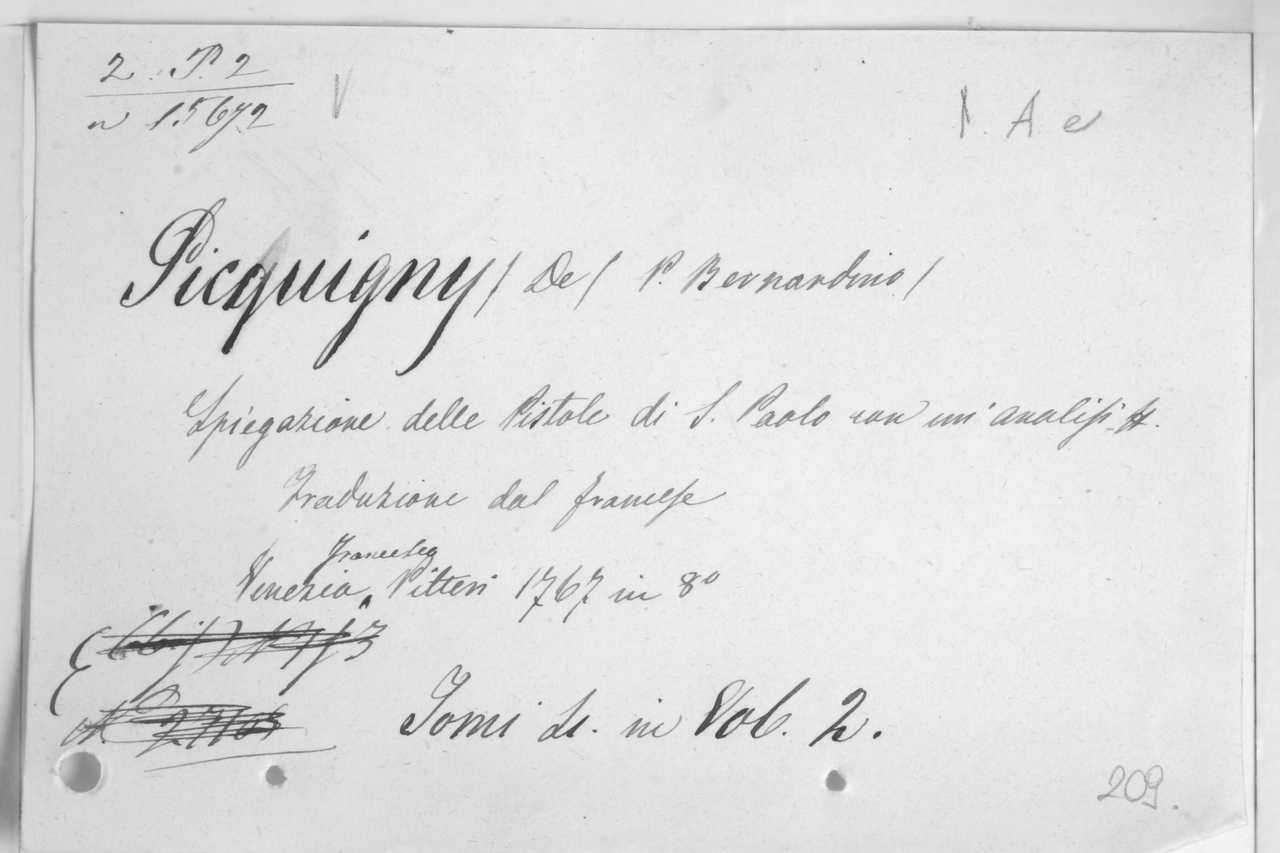 2. P. 2
n 15672
V
A e
Picquigny / De / P. Bernardino /
Spiegazione delle Pistole di S. Paolo con un' analisi
Traduzione dal francese
Francesco
Venezia, Pitteri 1767 in 8º
Tomi in Vol. 2.
209.